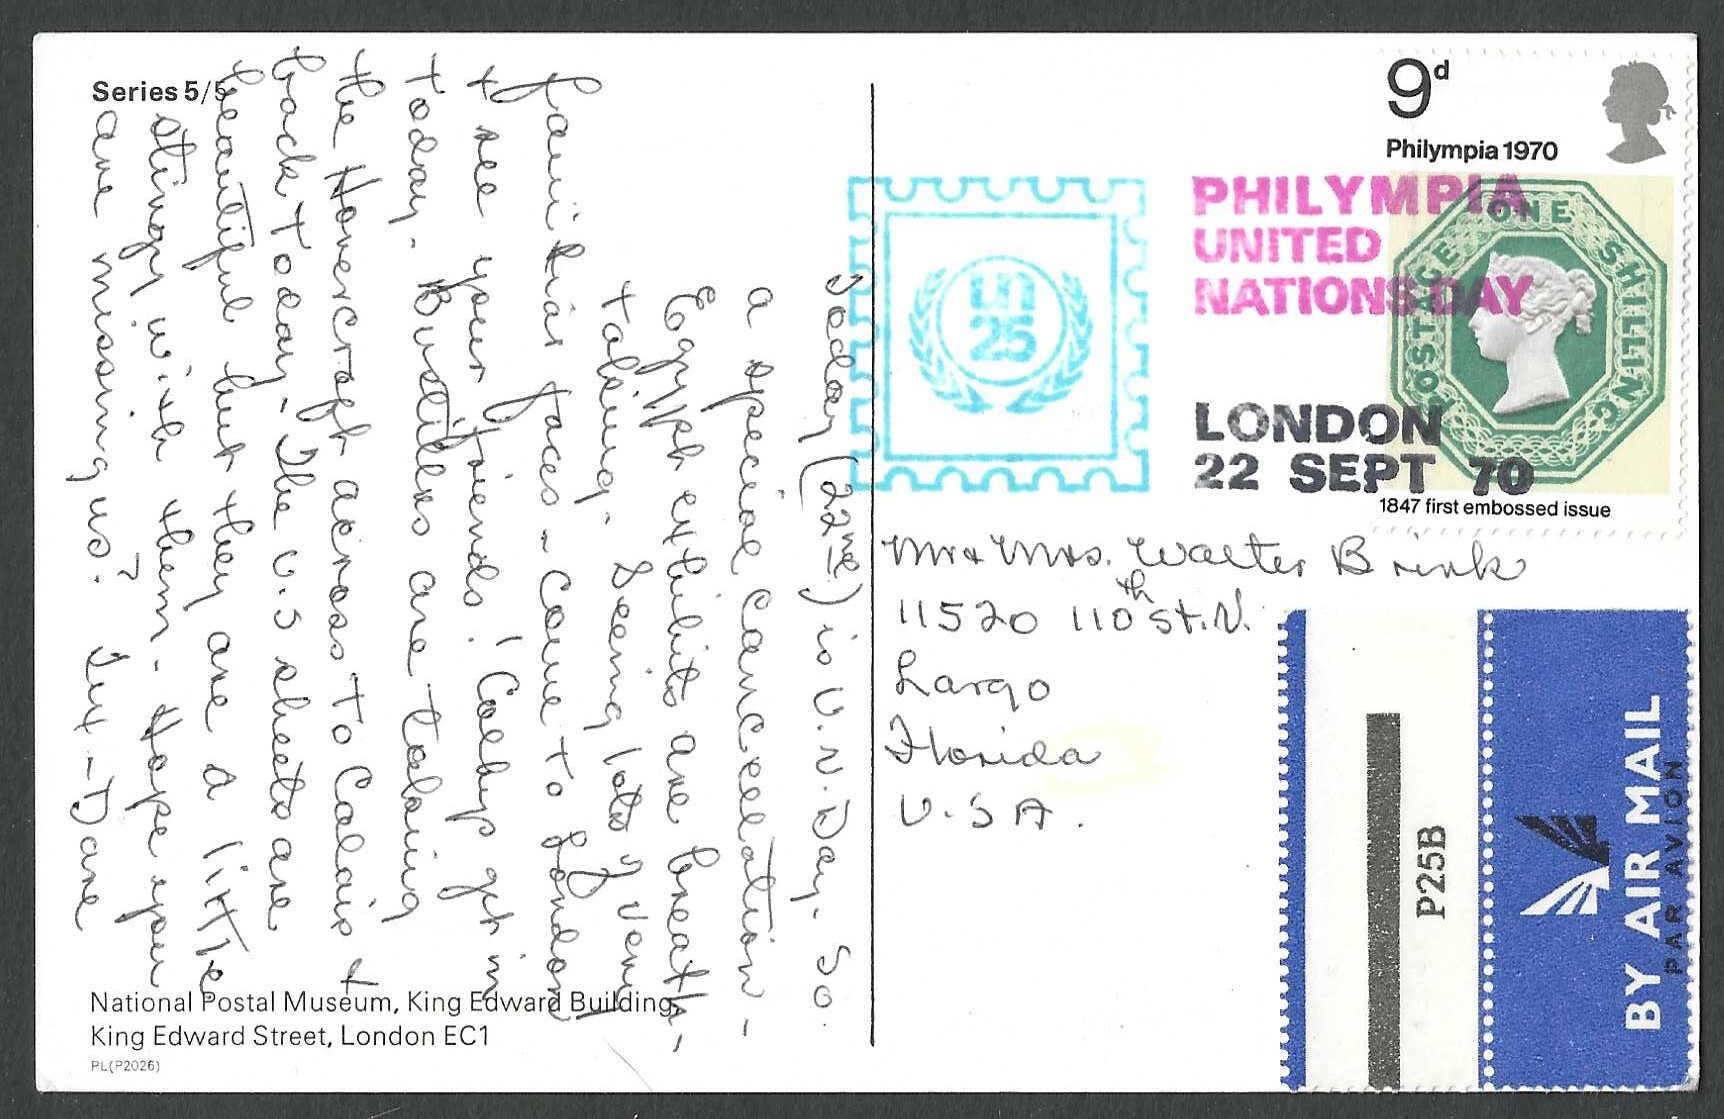 Series 5/5
Today (22nd) is U.N. Day. So
a special cancellation -
Egypt exhibits are breath-
taking. Seeing lots of very
familiar faces - Come to London
& see your friends! Colby get in
today. Bustillos are taking
the Hovercraft across to Calais &
back today - The U.S sheets are
beautiful but they are a little
stingy with them. Hope your
are missing us?
National Postal Museum, King Edward Building,
King Edward Street, London EC1
PL(P2026)
9d
Philympia 1970
POSTAGE ONE SHILLING
1847 first embossed issue
un
25
PHILYMPIA
UNITED
NATIONS DAY
LONDON
22 SEPT 70
Mr & Mrs. Walter Brink
11520 110th St. N.
Largo
Florida
U.S.A.
P25B
BY AIR MAIL
PAR AVION